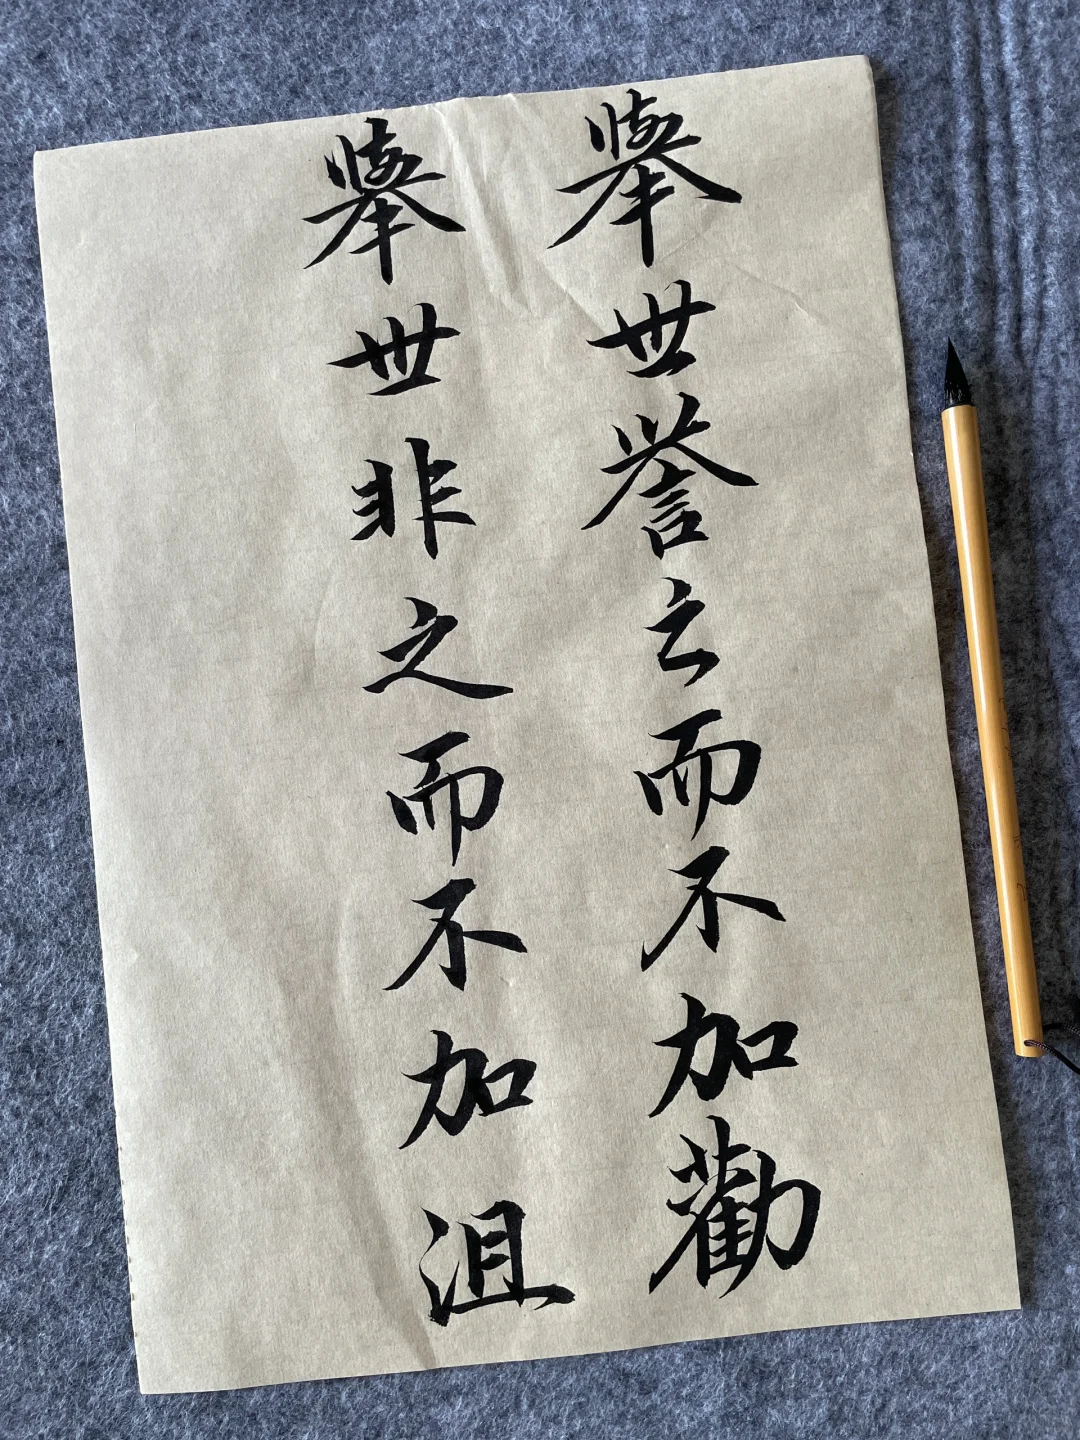 舉世誉之而不加勸
舉世非之而不加沮